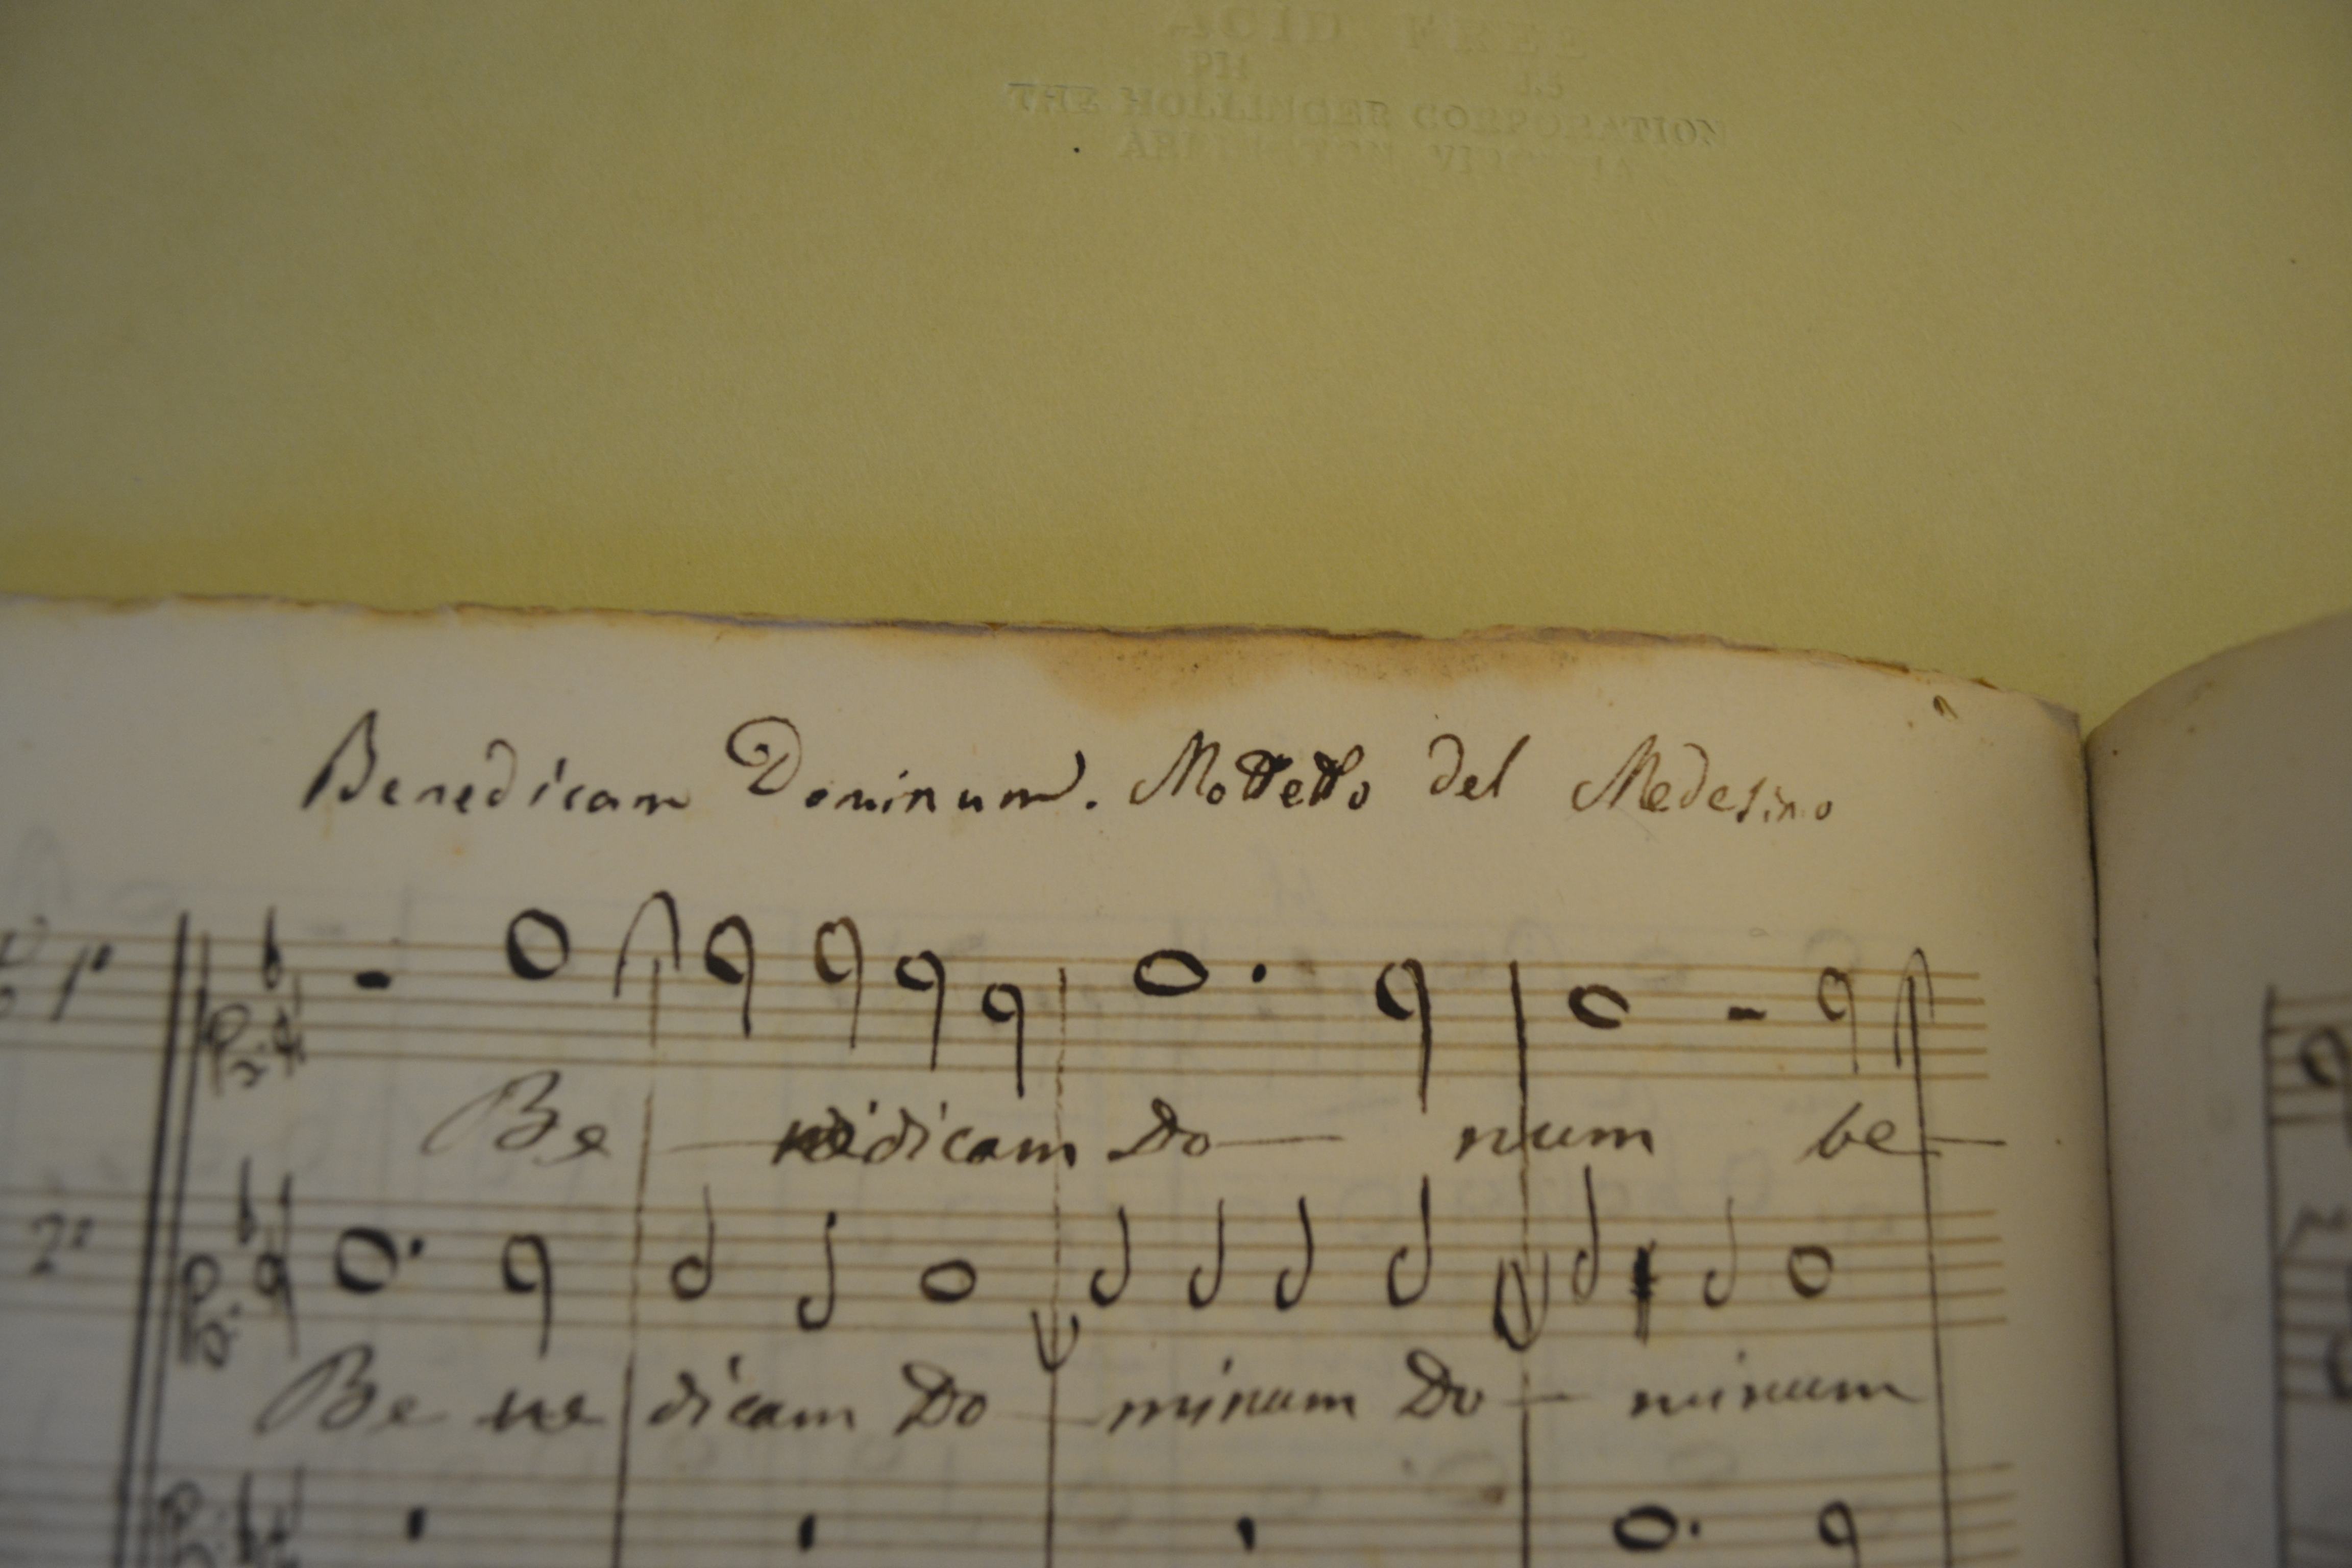 ACID FREE
THE HOLLINGER CORPORATION
ARLINGTON, VIRGINIA
Benedicam Dominum. Mottetto del Medesimo
1º
Be — nedicam Do — num be —
2º
Be ne dicam Do — minum Do — minum